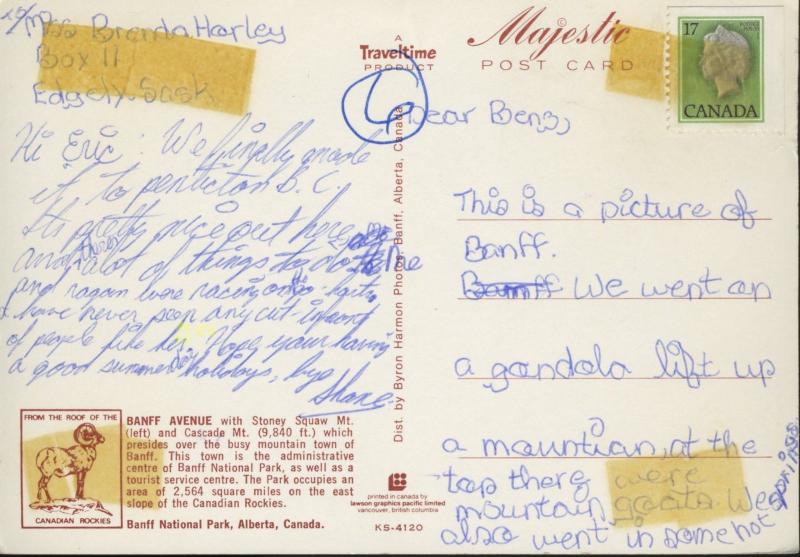 Miss Brenda Harley
Box 11
Edgely. Sask
Hi Eric: We finally made
it to penticton B.C.
Its pretty nice out here
and theres a lot of things to do
and ragan were racing on the
I have never seen any cut-infront
of people like her. Hope your having
a good summer holidays, bye
Shane
FROM THE ROOF OF THE
CANADIAN ROCKIES
BANFF AVENUE with Stoney Squaw Mt.
(left) and Cascade Mt. (9,840 ft.) which
presides over the busy mountain town of
Banff. This town is the administrative
centre of Banff National Park, as well as a
tourist service centre. The Park occupies an
area of 2,564 square miles on the east
slope of the Canadian Rockies.
Banff National Park, Alberta, Canada.
A
Traveltime
PRODUCT
Dist. by Byron Harmon Photos, Banff, Alberta, Canada
printed in canada by
lawson graphics pacific limited
vancouver, british columbia
KS-4120
Majestic
©
POST CARD
17
CANADA
Dear Benz,
This is a picture of
Banff.
Banff We went on
a gondola lift up
a mountian, at the
top there were
mountain goats. We
also went in some hot